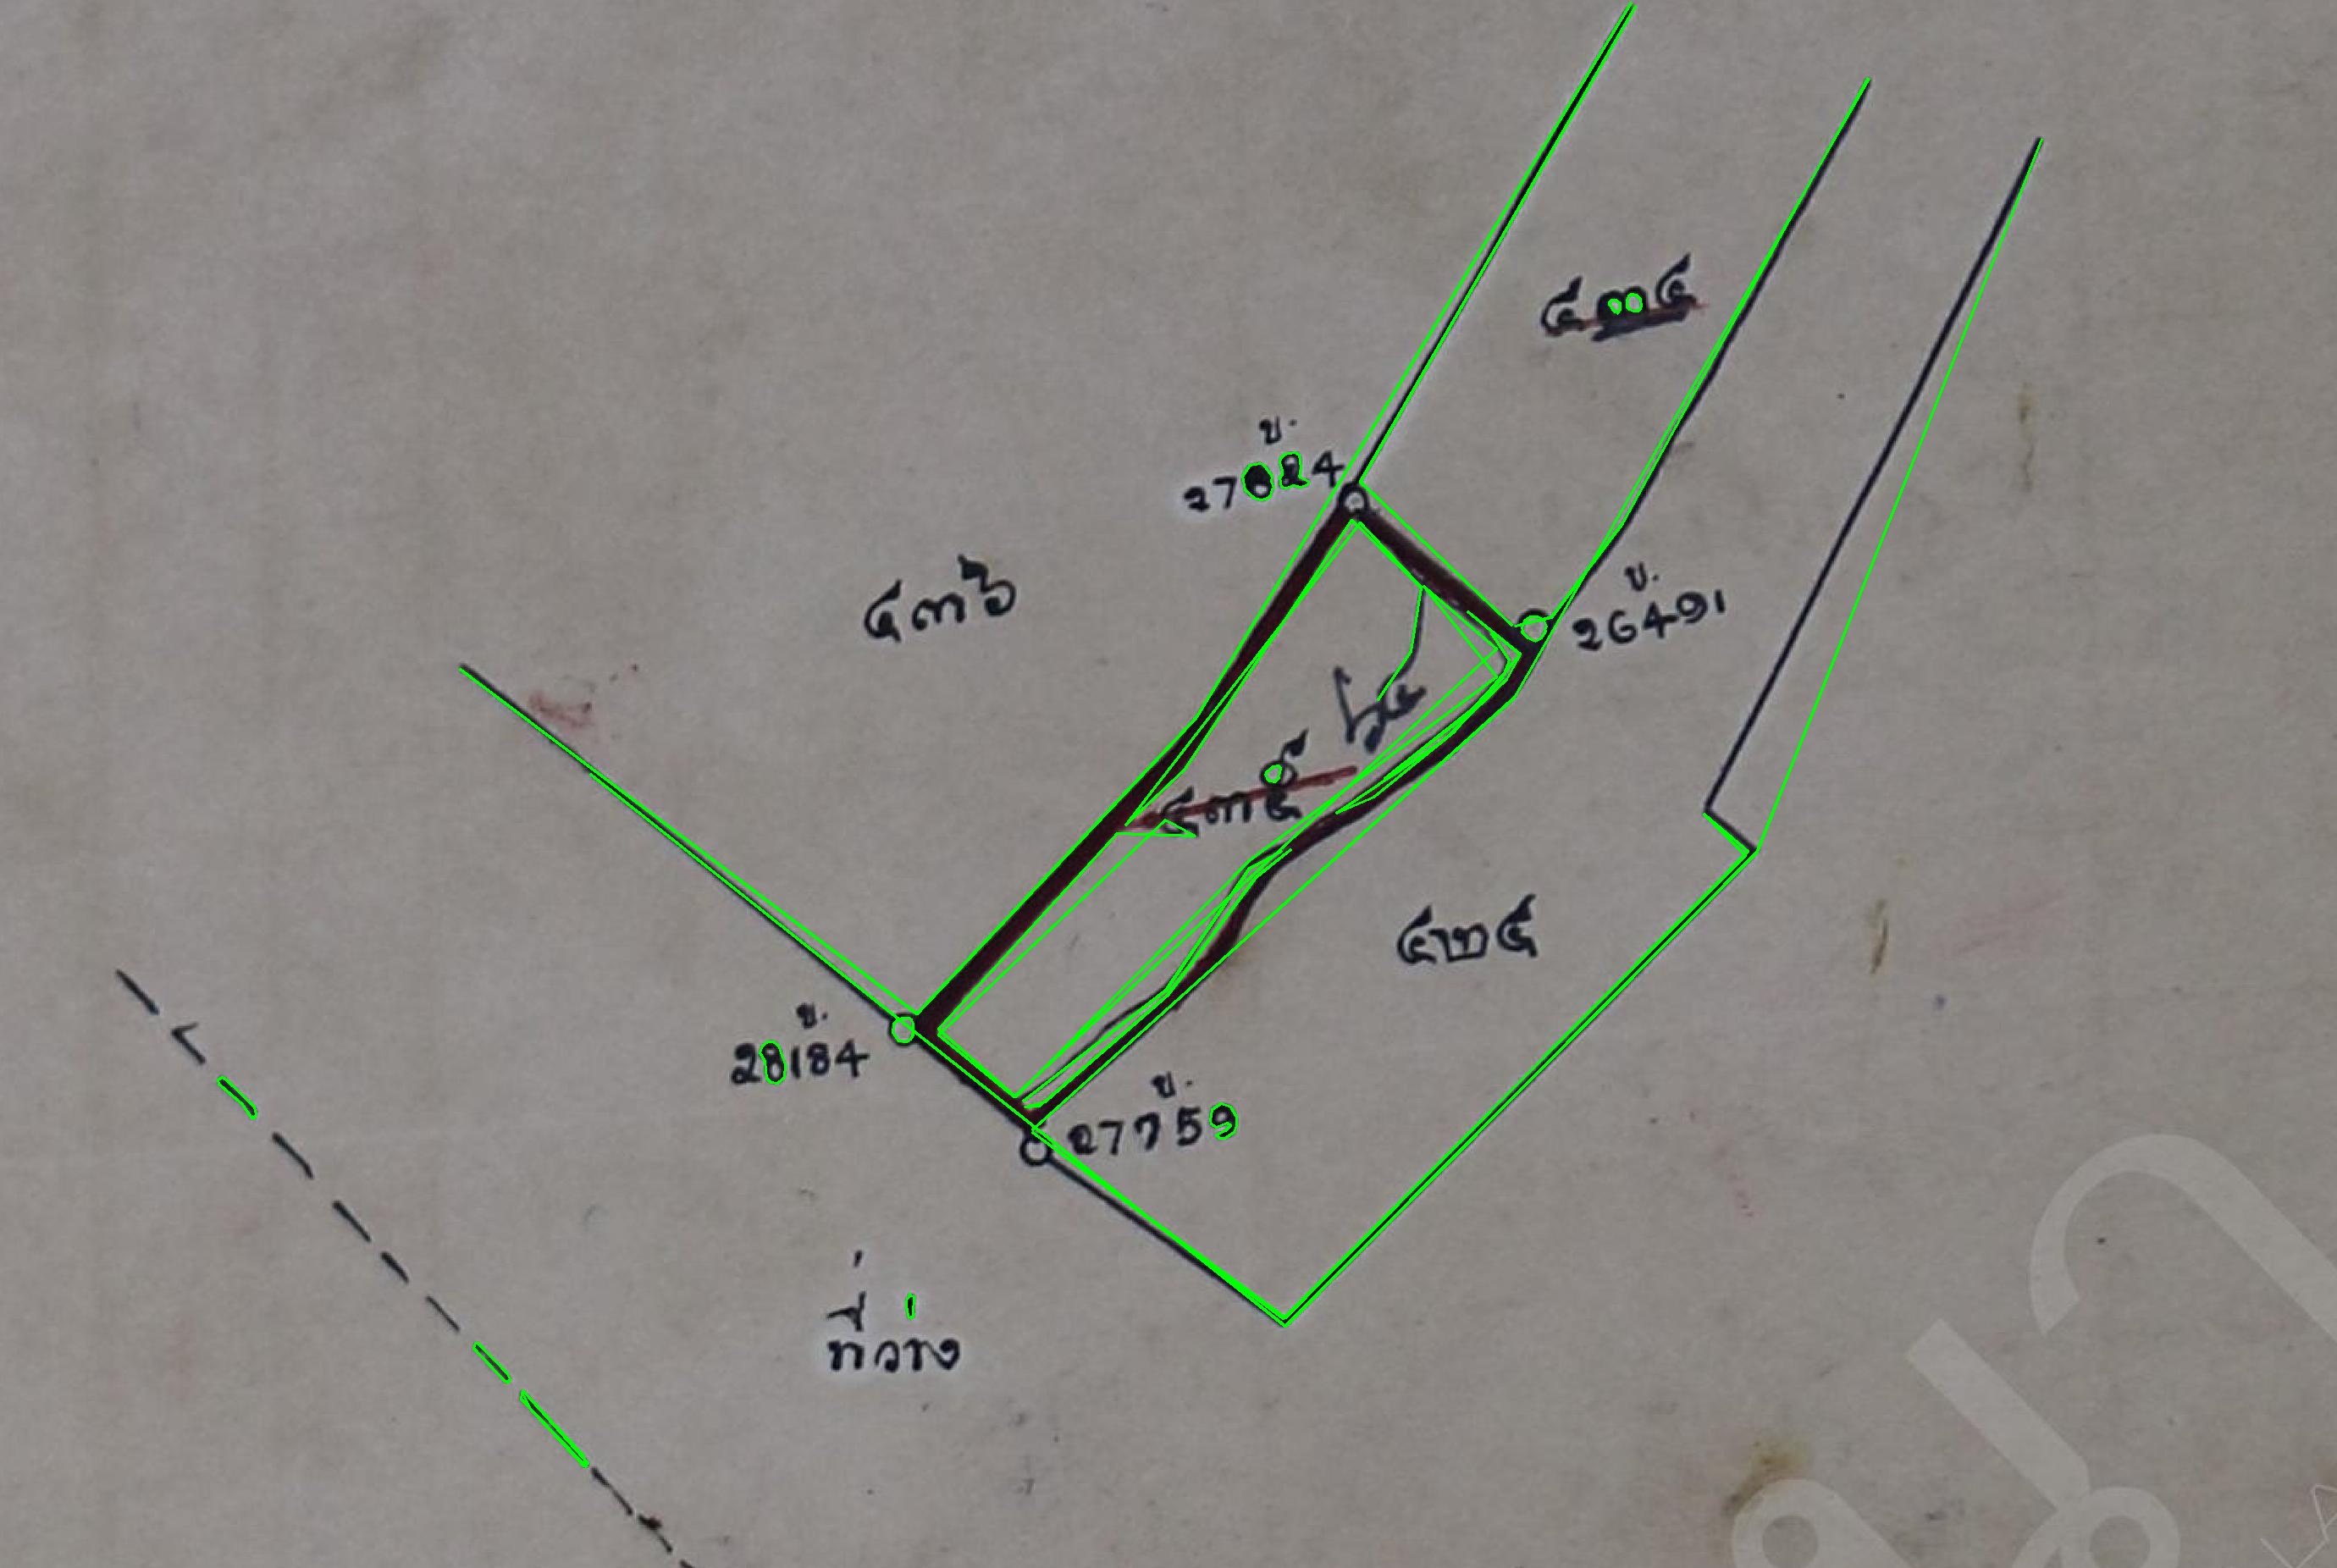 ๔๓๔
ข.
27824
๔๓๖
ข.
26491
๖๔
๔๓๕
๔๒๕
ข.
28184
ข.
27759
ที่ว่าง